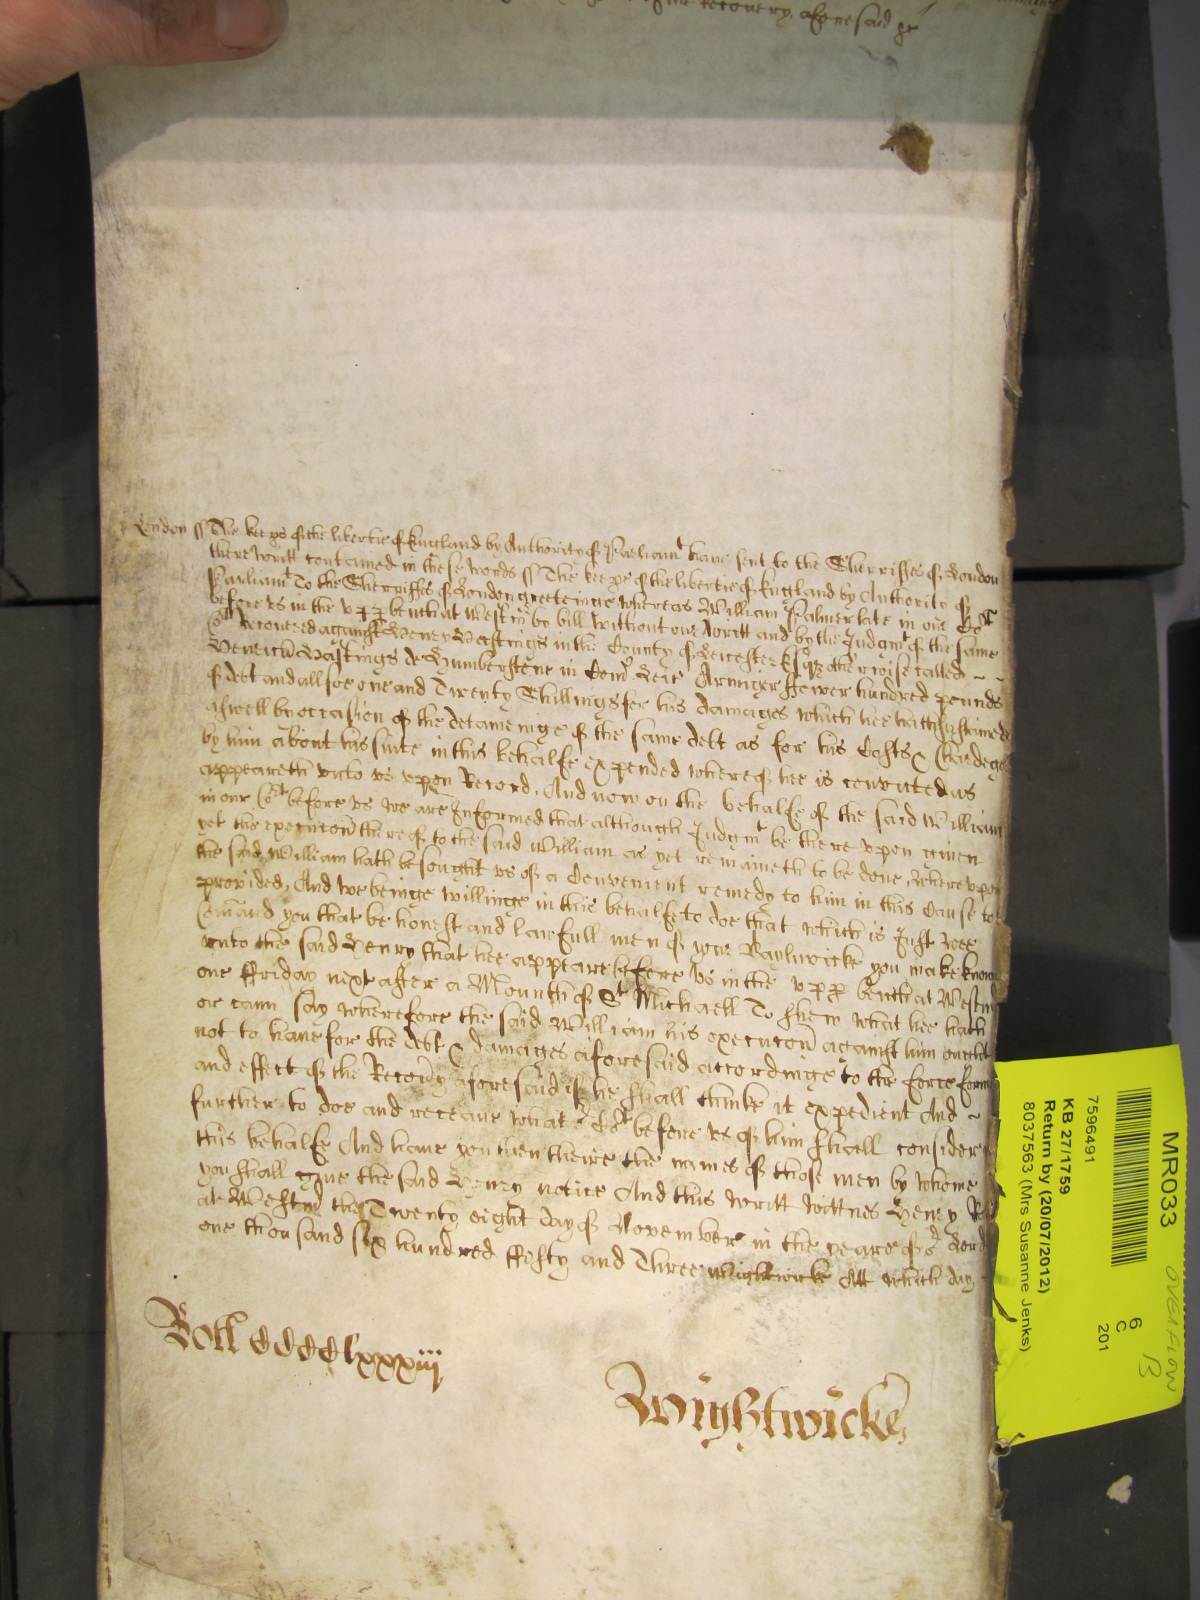 the Recovery aforesaid
London ss The keeps of the libertie of England by Authority of Parliamt have sent to the Sherriffes of London
there writt contained in these words ss The keeps of the libertie of England by Authority of
Parliamt To the Sherriffes of London greeteinge whereas William Palmer late in our Cort
before vs in the vpp bench at Westmr by bill without our writt and by the Judgmt of the same
Cort Recovered against Henry Hastings in the County of Leicester Esqr otherwise called
Henrich Hastings de Humberstone in Com Leic Armiger ffower hundred pounds
of debt and allsoe one and Twenty Shillings for his damages which hee hath sustained
aswell by occasion of the deteineinge of the same debt as for his Costs & Chardeges
by him about his suite in this behalfe expended whereof hee is convicted as
appeareth vnto vs vpon Record, And now on the behalfe of the said William
in our Cort before vs we are Informed that although Judgmt be there vpon given
yet the execucon thereof to the said William as yet remaineth to be done, where vpon
the said William hath besought vs of a Convenient remedy to him in this Cause to be
provided, And we beinge willinge in this behalfe to doe that which is Just wee
Comand you that be honest and lawfull men of your Bayliwicke you make knowne
vnto the said Henry that hee appeare before vs in the vpp bench at Westm
one ffriday next after a Mounth of St Michaell To shew what hee hath
or cann say wherefore the said William his execucon against him ought
not to have for the debt & damages aforesaid accordinge to the force forme
and effect of the Recovy aforesaid if he shall thinke it expedient And
further to doe and receave what or Cort before vs of him shall consider in
this behalfe And have you then theire the names of those men by whome
you shall give the said Henry notice And this writt wittnes Henry Rolle
at Westmr the Twenty eight day of November in the yeare of or Lord
one thousand six hundred ffifty and Three Wightwicke Att which day
Roll CCCClxxxiij
Wightwicke
MR033
OVERFLOW
13
6
C
201
7596491
KB 27/1759
Return by (20/07/2012)
8037563 (Mrs Susanne Jenks)